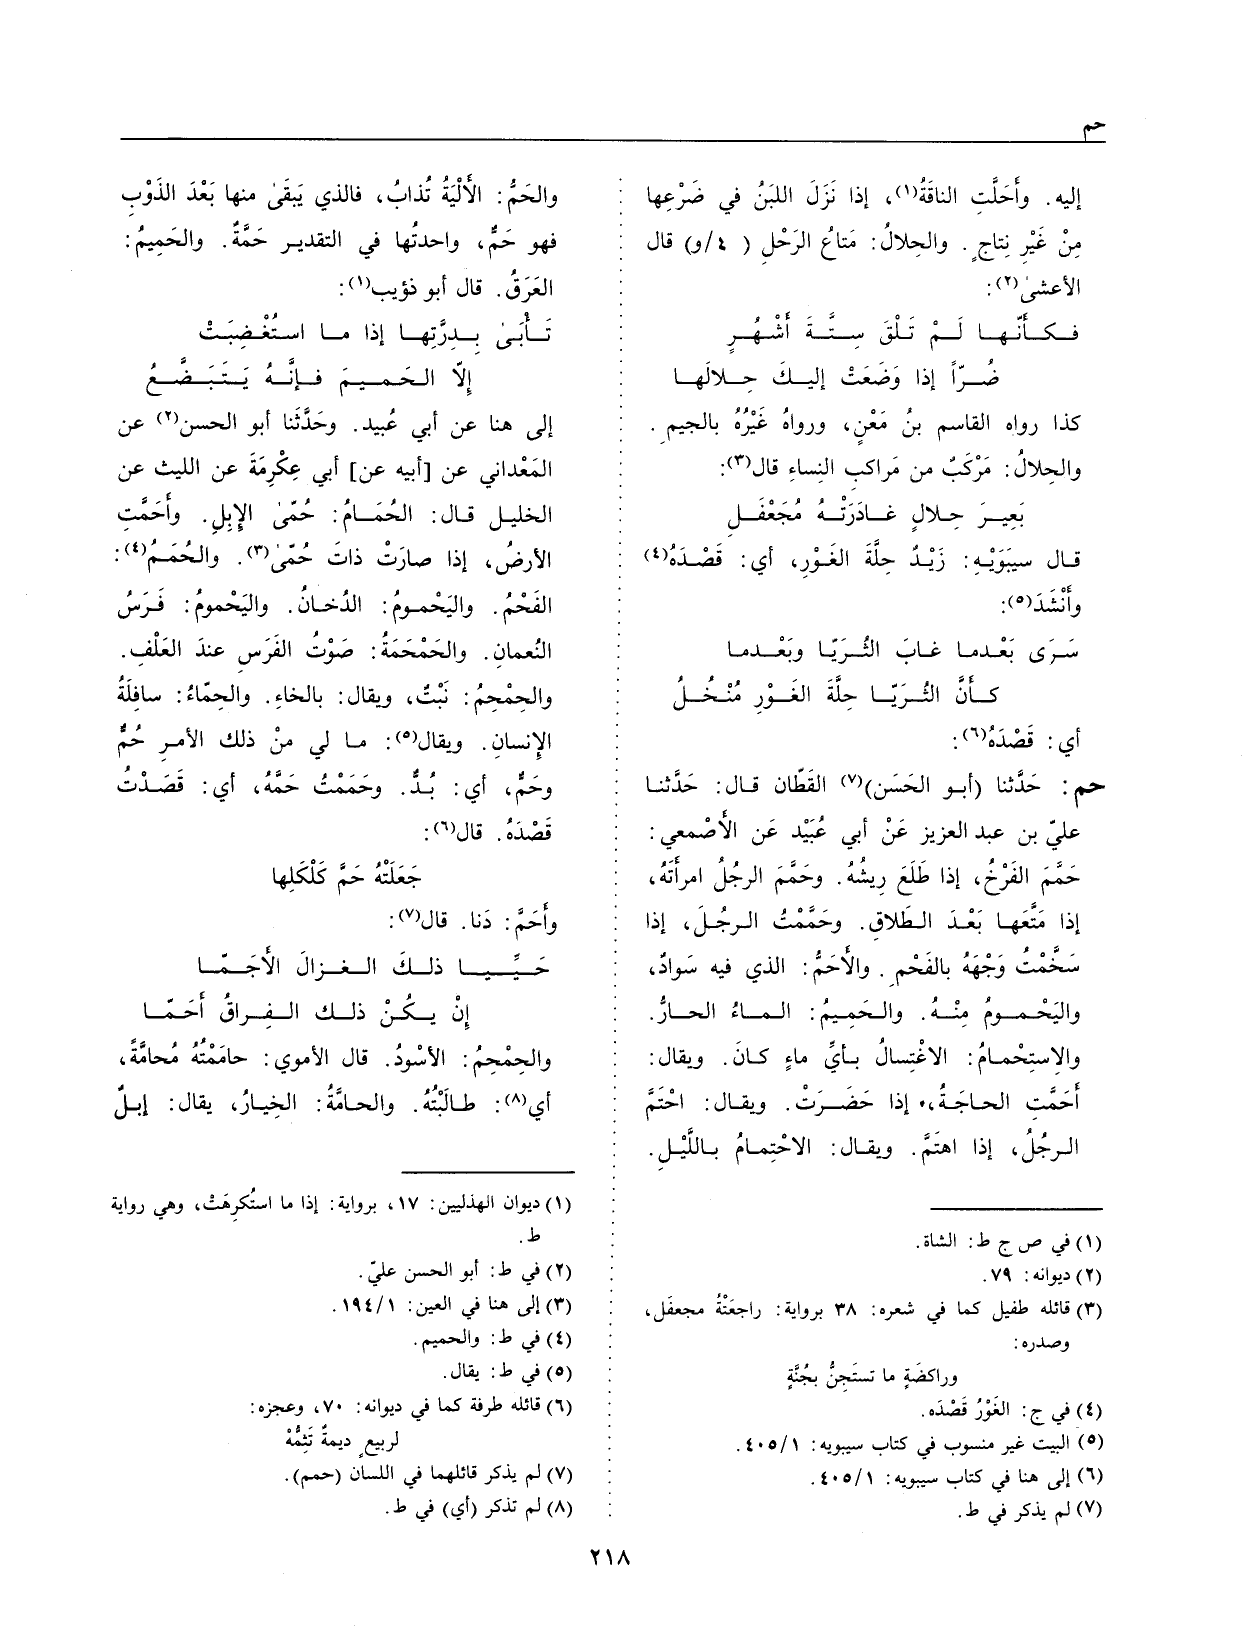 حم
إليه. وأَحَلَّتِ الناقَةُ(١)، إذا نَزَلَ اللبَنُ في ضَرْعِها
مِنْ غَيْرِ نِتاجٍ. والحِلالُ: مَتاعُ الرَحْلِ (٤/و) قال
الأعشىٰ(٢):
فـكـأَنّـهـا لَـمْ تَـلْقَ سِـتَّـةَ أَشْـهُـرٍ
ضُـرّاً إذا وَضَعَتْ إليـكَ جِـلالَهـا
كذا رواه القاسم بنُ مَعْنٍ، ورواهُ غَيْرُهُ بالجيمِ.
والحِلالُ: مَرْكَبٌ من مَراكبِ النِساءِ قال(٣):
بَعِيـرَ حِـلالٍ غـادَرَتْـهُ مُجَعْفَلِ
قـال سيبَوَيْهِ: زَيْـدٌ حِلَّةَ الغَـوْرِ، أي: قَصْدَهُ(٤)
وأَنْشَدَ(٥):
سَـرَى بَعْـدمـا غـابَ الثُـرَيّـا وبَعْـدمـا
كـأَنَّ الثُـرَيّـا حِلَّةَ الغَـوْرِ مُنْخُـلُ
أي: قَصْدَهُ(٦):
حم: حَدَّثنا (أبـو الحَسَن)(٧) القَطّان قـال: حَدَّثنـا
عليّ بن عبد العزيز عَنْ أبي عُبَيْد عَن الأَصْمعي:
حَمَّمَ الفَرْخُ، إذا طَلَعَ رِيشُهُ. وحَمَّمَ الرجُلُ امرأتَهُ،
إذا مَتَّعَهـا بَعْـدَ الـطَلاقِ. وحَمَّمْتُ الـرجُـلَ، إذا
سَخَّمْتُ وَجْهَهُ بالفَحْمِ. والأَحَمُّ: الذي فيه سَوادٌ،
واليَحْمـومُ مِنْـهُ. والـحَمِيمُ: الـمـاءُ الـحـارُّ.
والاستِحْمـامُ: الاغْتِسالُ بـأيِّ ماءٍ كـانَ. ويقال:
أَحَمَّتِ الحـاجَـةُ، إذا حَضَـرَتْ. ويقـال: احْتَمَّ
الـرجُلُ، إذا اهتَمَّ. ويقـال: الاحْتِمـامُ بـاللَّيْلِ.
(١) في ص ج ط: الشاة.
(٢) ديوانه: ٧٩.
(٣) قائله طفيل كما في شعره: ٣٨ برواية: راجَعَتْهُ مجعفَل،
وصدره:
وراكضَةٍ ما تستَجِنُّ بجُنَّةٍ
(٤) في ج: الغَوْرُ قَصْدَه.
(٥) البيت غير منسوب في كتاب سيبويه: ٤٠٥/١.
(٦) إلى هنا في كتاب سيبويه: ٤٠٥/١.
(٧) لم يذكر في ط.
والحَمُّ: الأَلْيَةُ تُذابُ، فالذي يَبقَىٰ منها بَعْدَ الذَوْبِ
فهو حَمٌّ، واحدتُها في التقديـر حَمَّةٌ. والحَمِيمُ:
العَرَقُ. قال أبو ذؤيب(١):
تَـأبَىٰ بِـدِرَّتِهـا إذا مـا استُغْضِبَتْ
إلّا الـحَمـيـمَ فـإنَّـهُ يَـتَبَـضَّـعُ
إلى هنا عن أبي عُبيد. وحَدَّثَنا أبو الحسن(٢) عن
المَعْداني عن [أبيه عن] أبي عِكْرِمَةَ عن الليث عن
الخليل قـال: الحُمَـامُ: حُمّىٰ الإِبِلِ. وأَحَمَّتِ
الأرضُ، إذا صارَتْ ذاتَ حُمّىٰ(٣). والحُمَـمُ(٤):
الفَحْمُ. واليَحْمـومُ: الدُخـانُ. واليَحْمومُ: فَـرَسُ
النُعمانِ. والحَمْحَمَةُ: صَوْتُ الفَرَسِ عندَ العَلَفِ.
والحِمْحِمُ: نَبْتٌ، ويقال: بالخاءِ. والحِمّاءُ: سافِلَةُ
الإنسانِ. ويقال(٥): مـا لي منْ ذلك الأمـرِ حُمٌّ
وحَمٌّ، أي: بُـدٌّ. وحَمَمْتُ حَمَّهُ، أي: قَصَـدْتُ
قَصْدَهُ. قال(٦):
جَعَلَتْهُ حَمَّ كَلْكَلِها
وأَحَمَّ: دَنا. قال(٧):
حَـيِّـيـا ذلـكَ الـغـزالَ الأَجَـمّـا
إنْ يـكُـنْ ذلـك الـفِـراقُ أَحَمّـا
والحِمْحِمُ: الأسْودُ. قال الأموي: حامَمْتُهُ مُحامَّةً،
أي(٨): طـالَبْتُهُ. والحامَّةُ: الخِيارُ، يقال: إبـلٌ
(١) ديوان الهذليين: ١٧، برواية: إذا ما استُكرِهَتْ، وهي رواية
ط.
(٢) في ط: أبو الحسن عليّ.
(٣) إلى هنا في العين: ١٩٤/١.
(٤) في ط: والحميم.
(٥) في ط: يقال.
(٦) قائله طرفة كما في ديوانه: ٧٠، وعجزه:
لربيعٍ ديمةٌ تَثِمُّهْ
(٧) لم يذكر قائلهما في اللسان (حمم).
(٨) لم تذكر (أي) في ط.
٢١٨